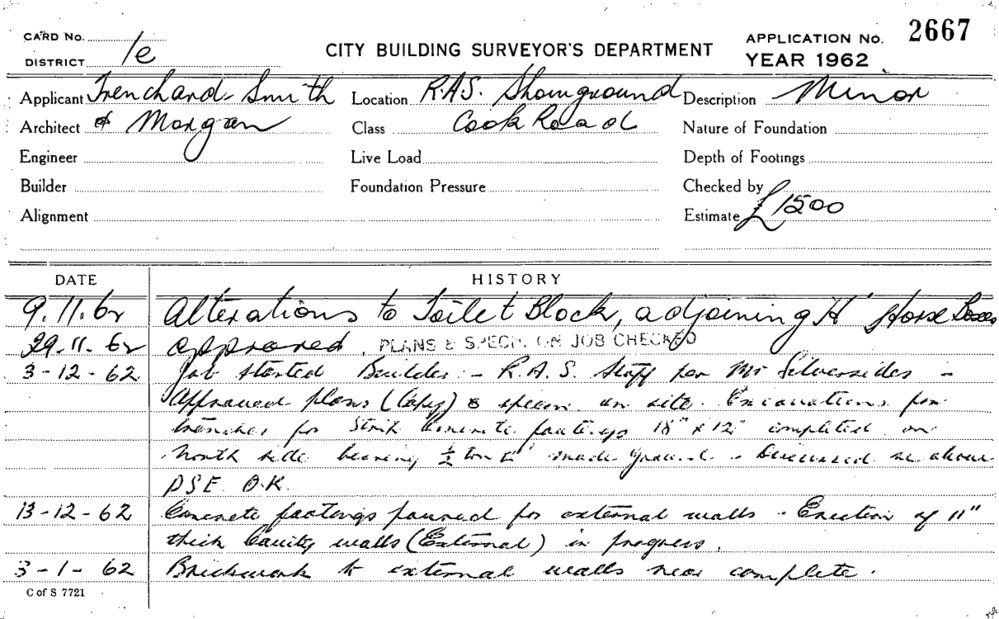 CARD No.
DISTRICT 1e
CITY BUILDING SURVEYOR'S DEPARTMENT
APPLICATION No. 2667
YEAR 1962
Applicant Trenchard-Smith Location R.A.S. Showground Description Minor
Architect & Morgan Class Cook Road Nature of Foundation
Engineer Live Load Depth of Footings
Builder Foundation Pressure Checked by
Alignment Estimate £1500
DATE HISTORY
9.11.62 Alterations to Toilet Block, adjoining "H" Horse Boxes
29.11.62 approved. PLANS & SPECN. ON JOB CHECKED
3-12-62 Job started Builder:- R.A.S. Staff per Mr Silversides -
Approved plans (Copy) & specn on site. Excavations for
trenches for strip concrete footings 18" x 12" completed on
North side bearing ½ ton made ground. Discussed above
DSE. O.K.
13-12-62 Concrete footings poured for external walls. Erection of 11"
thick Cavity walls (External) in progress.
3-1-62 Brickwork to external walls near complete.
C of S 7721